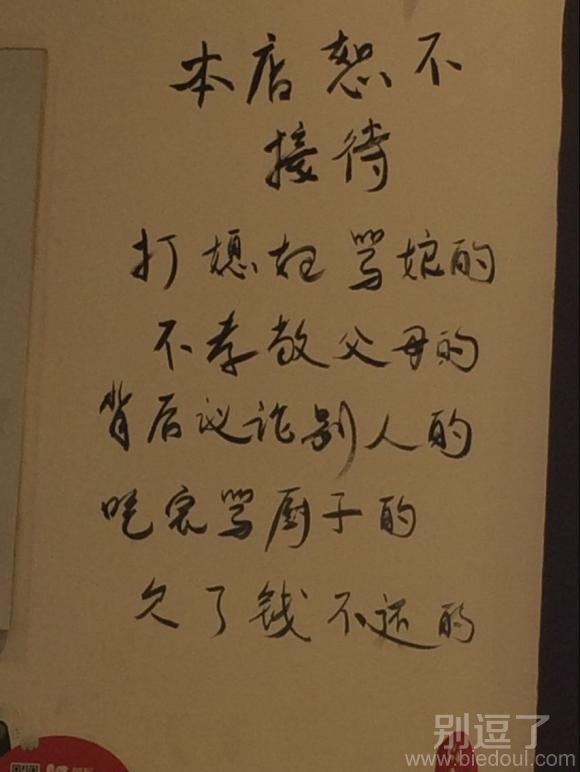 本店恕不
接待
打媳妇骂娘的
不孝敬父母的
背后议论别人的
吃完骂厨子的
欠了钱不还的
别逗了
www.biedoul.com